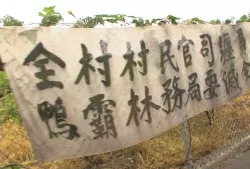 全村村民官司纏
鴨霸林務局要滅